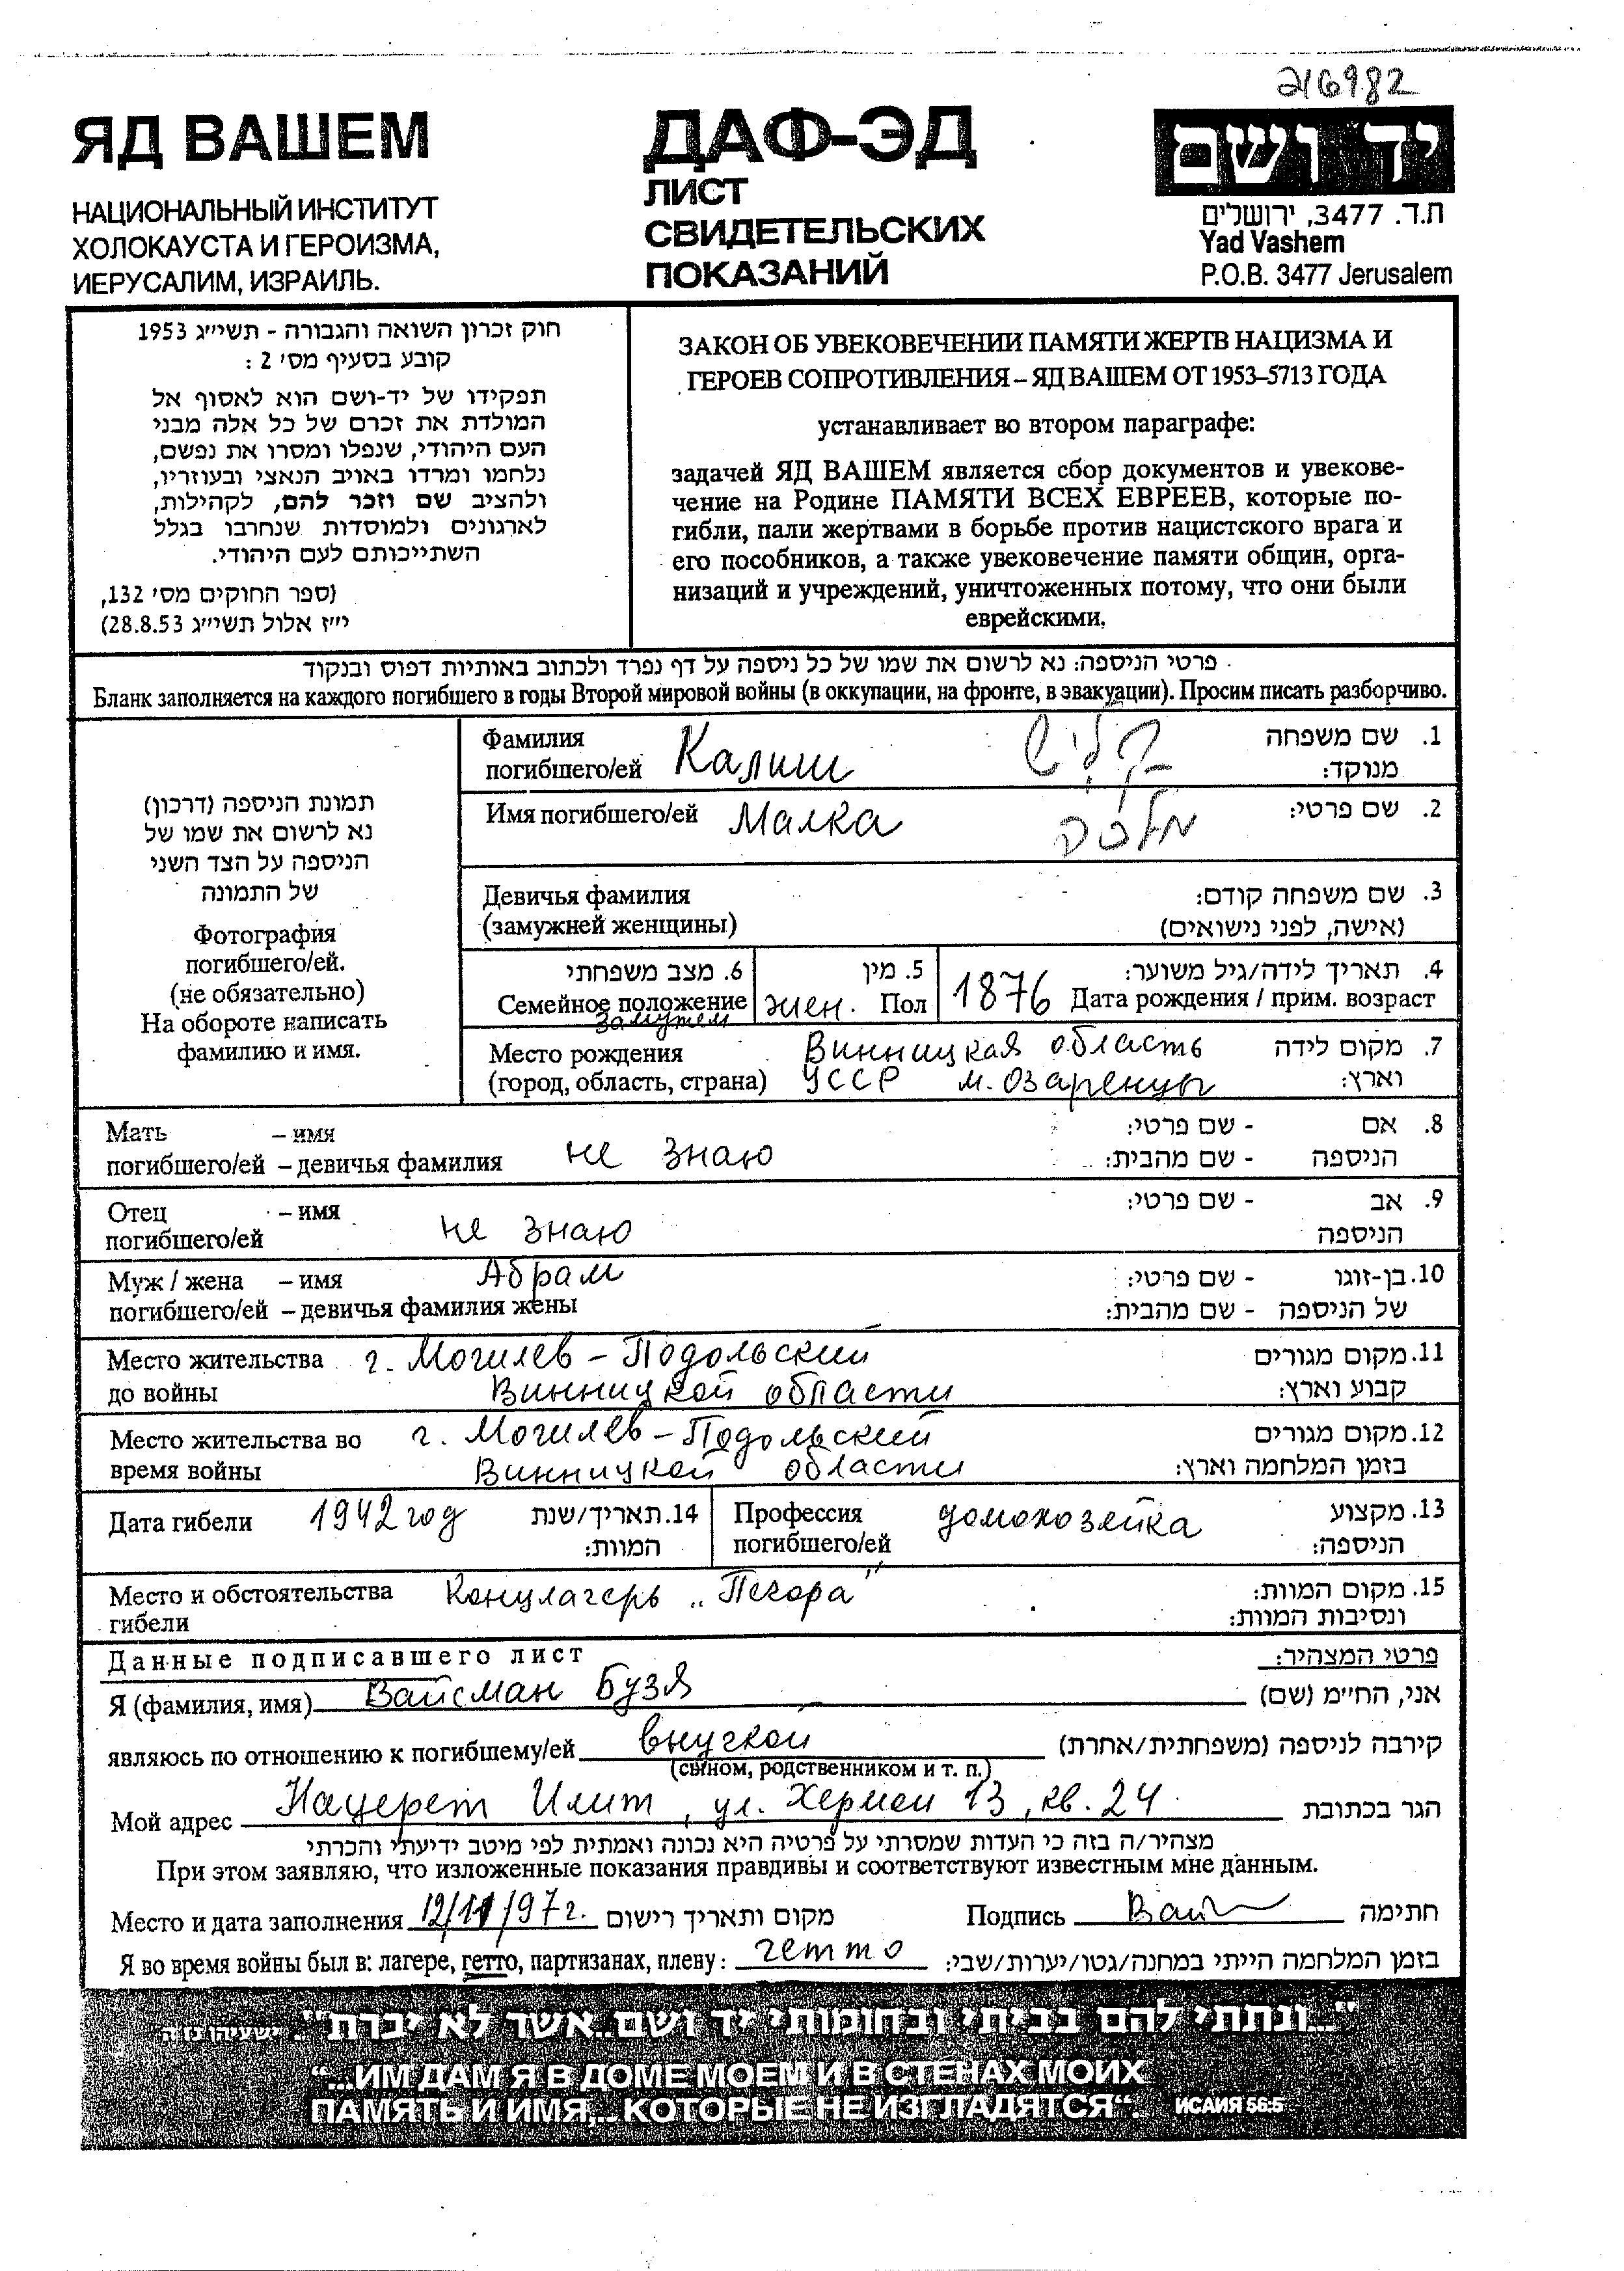 216982
ЯД ВАШЕМ
НАЦИОНАЛЬНЫЙ ИНСТИТУТ
ХОЛОКАУСТА И ГЕРОИЗМА,
ИЕРУСАЛИМ, ИЗРАИЛЬ.
ДАФ-ЭД
ЛИСТ
СВИДЕТЕЛЬСКИХ
ПОКАЗАНИЙ
יד ושם
ת.ד. 3477, ירושלים
Yad Vashem
P.O.B. 3477 Jerusalem
חוק זכרון השואה והגבורה - תשי״ג 1953
קובע בסעיף מס׳ 2 :
תפקידו של יד-ושם הוא לאסוף אל
המולדת את זכרם של כל אלה מבני
העם היהודי, שנפלו ומסרו את נפשם,
נלחמו ומרדו באויב הנאצי ובעוזריו,
ולהציב שם וזכר להם, לקהילות,
לארגונים ולמוסדות שנחרבו בגלל
השתייכותם לעם היהודי.
(ספר החוקים מס׳ 132,
י״ז אלול תשי״ג 28.8.53)
ЗАКОН ОБ УВЕКОВЕЧЕНИИ ПАМЯТИ ЖЕРТВ НАЦИЗМА И
ГЕРОЕВ СОПРОТИВЛЕНИЯ – ЯД ВАШЕМ ОТ 1953–5713 ГОДА
устанавливает во втором параграфе:
задачей ЯД ВАШЕМ является сбор документов и увекове-
чение на Родине ПАМЯТИ ВСЕХ ЕВРЕЕВ, которые по-
гибли, пали жертвами в борьбе против нацистского врага и
его пособников, а также увековечение памяти общин, орга-
низаций и учреждений, уничтоженных потому, что они были
еврейскими.
פרטי הניספה: נא לרשום את שמו של כל ניספה על דף נפרד ולכתוב באותיות דפוס ובנקוד
Бланк заполняется на каждого погибшего в годы Второй мировой войны (в оккупации, на фронте, в эвакуации). Просим писать разборчиво.
תמונת הניספה (דרכון)
נא לרשום את שמו של
הניספה על הצד השני
של התמונה
Фотография
погибшего/ей.
(не обязательно)
На обороте написать
фамилию и имя.
Фамилия
погибшего/ей Калиш קליש
1. שם משפחה
מנוקד:
Имя погибшего/ей Малка מלכה 2. שם פרטי:
Девичья фамилия 3. שם משפחה קודם:
(замужней женщины) (אישה, לפני נישואים)
6. מצב משפחתי 5. מין 4. תאריך לידה/גיל משוער:
Семейное положение жен. Пол 1876 Дата рождения / прим. возраст
замужем
Место рождения Винницкая область 7. מקום לידה
(город, область, страна) УССР м. Озаренцы וארץ:
Мать – имя 8. אם - שם פרטי:
погибшего/ей – девичья фамилия не знаю הניספה - שם מהבית:
Отец – имя 9. אב - שם פרטי:
погибшего/ей не знаю הניספה
Муж / жена – имя Абрам 10. בן-זוגו - שם פרטי:
погибшего/ей – девичья фамилия жены של הניספה - שם מהבית:
Место жительства г. Могилев-Подольский 11. מקום מגורים
до войны Винницкой области קבוע וארץ:
Место жительства во г. Могилев-Подольский 12. מקום מגורים
время войны Винницкой области בזמן המלחמה וארץ:
Дата гибели 1942 год 14. תאריך/שנת
המוות:
Профессия домохозейка 13. מקצוע
погибшего/ей הניספה:
Место и обстоятельства Концлагерь „Печора" 15. מקום המוות:
гибели ונסיבות המוות:
Данные подписавшего лист פרטי המצהיר:
Я (фамилия, имя) Вайсман Бузя אני, הח״מ (שם)
являюсь по отношению к погибшему/ей внучкой קירבה לניספה (משפחתית/אחרת)
(сыном, родственником и т. п.)
Мой адрес Нацерет Илит, ул. Хермон 13, кв. 24 הגר בכתובת
מצהיר/ה בזה כי העדות שמסרתי על פרטיה היא נכונה ואמתית לפי מיטב ידיעתי והכרתי
При этом заявляю, что изложенные показания правдивы и соответствуют известным мне данным.
Место и дата заполнения 12/11/97г. מקום ותאריך רישום Подпись Вай חתימה
Я во время войны был в: лагере, гетто, партизанах, плену: гетто בזמן המלחמה הייתי במחנה/גטו/יערות/שבי:
"...ונתתי להם בביתי ובחומותי יד ושם...אשר לא יכרת". ישעיהו נו ה
“...ИМ ДАМ Я В ДОМЕ МОЕМ И В СТЕНАХ МОИХ
ПАМЯТЬ И ИМЯ... КОТОРЫЕ НЕ ИЗГЛАДЯТСЯ“. ИСАИЯ 56:5